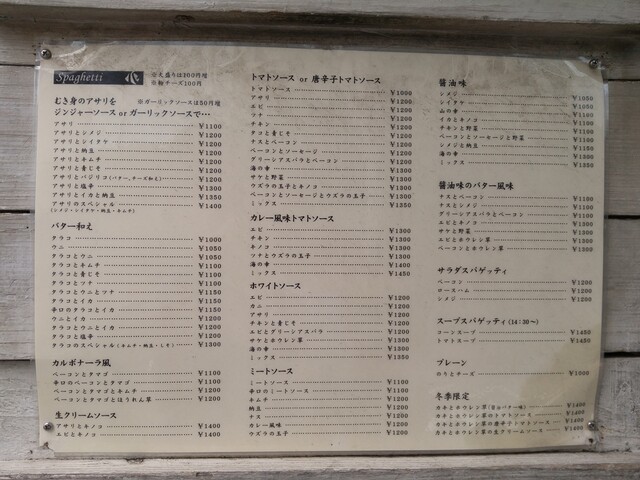 Spaghetti
◎大盛りは300円増
◎粉チーズ100円
むき身のアサリを ※ガーリックソースは50円増
ジンジャーソース or ガーリックソースで…
アサリ ¥1100
アサリとシメジ ¥1200
アサリとシイタケ ¥1200
アサリと納豆 ¥1200
アサリとキムチ ¥1200
アサリと青じそ ¥1200
アサリとバジリコ(バター、チーズ和え) ¥1200
アサリと塩辛 ¥1300
アサリとイカと納豆 ¥1350
アサリのスペシャル ¥1400
(シメジ・シイタケ・納豆・キムチ)
バター和え
タラコ ¥1000
ウニ ¥1050
タラコとウニ ¥1050
タラコとキムチ ¥1100
タラコと青じそ ¥1100
タラコとツナ ¥1100
タラコとウニとツナ ¥1150
タラコとイカ ¥1150
辛口のタラコとイカ ¥1150
ウニとイカ ¥1200
タラコとウニとイカ ¥1200
タラコと塩辛 ¥1200
タラコのスペシャル(キムチ・納豆・しそ) ¥1300
カルボナーラ風
ベーコンとタマゴ ¥1100
辛口のベーコンとタマゴ ¥1100
ベーコンとタマゴとキムチ ¥1200
ベーコンとタマゴとほうれん草 ¥1200
生クリームソース
アサリとキノコ ¥1400
エビとキノコ ¥1400
トマトソース or 唐辛子トマトソース
トマトソース ¥1000
アサリ ¥1200
エビ ¥1200
ツナ ¥1200
チキン ¥1200
タコと青じそ ¥1200
ナスとベーコン ¥1200
ベーコンとソーセージ ¥1200
グリーンアスパラとベーコン ¥1200
海の幸 ¥1300
サケと野菜 ¥1300
ウズラの玉子とキノコ ¥1300
ベーコンとソーセージとウズラの玉子 ¥1300
ミックス ¥1350
カレー風味トマトソース
エビ ¥1300
チキン ¥1300
キノコ ¥1300
ツナとウズラの玉子 ¥1300
海の幸 ¥1400
ミックス ¥1450
ホワイトソース
エビ ¥1200
カニ ¥1200
アサリ ¥1200
チキンと青じそ ¥1200
エビとグリーンアスパラ ¥1300
サケとホウレン草 ¥1300
海の幸 ¥1300
ミックス ¥1350
ミートソース
ミートソース ¥1100
辛口のミートソース ¥1100
キムチ ¥1200
納豆 ¥1200
ナス ¥1200
カレー風味 ¥1200
ウズラの玉子 ¥1200
醤油味
シメジ ¥1050
シイタケ ¥1050
山の幸 ¥1100
イカとキノコ ¥1100
チキンと野菜 ¥1100
ベーコンとソーセージと野菜 ¥1100
シメジと納豆 ¥1150
海の幸 ¥1300
ミックス ¥1350
醤油味のバター風味
ナスとベーコン ¥1100
ナスとシメジ ¥1100
グリーンアスパラとベーコン ¥1100
エビとキノコ ¥1300
サケと野菜 ¥1300
エビとホウレン草 ¥1300
ベーコンとホウレン草 ¥1300
サラダスパゲッティ
ベーコン ¥1200
ロースハム ¥1200
シメジ ¥1200
スープスパゲッティ(14:30〜)
コーンスープ ¥1450
トマトスープ ¥1450
プレーン
のりとチーズ ¥1000
冬季限定
カキとホウレン草(醤油バター味) ¥1400
カキとホウレン草のトマトソース ¥1400
カキとホウレン草の唐辛子トマトソース ¥1400
カキとホウレン草の生クリームソース ¥1400